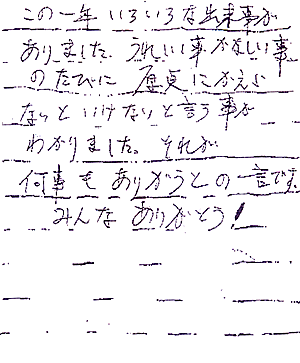 この一年 いろいろな出来事が
ありました. うれしい事かなしい事
のたびに 原点にかえら
ないといけないと言う事が
わかりました。それが
何事もありがうとの一言です.
みんなありがとう!